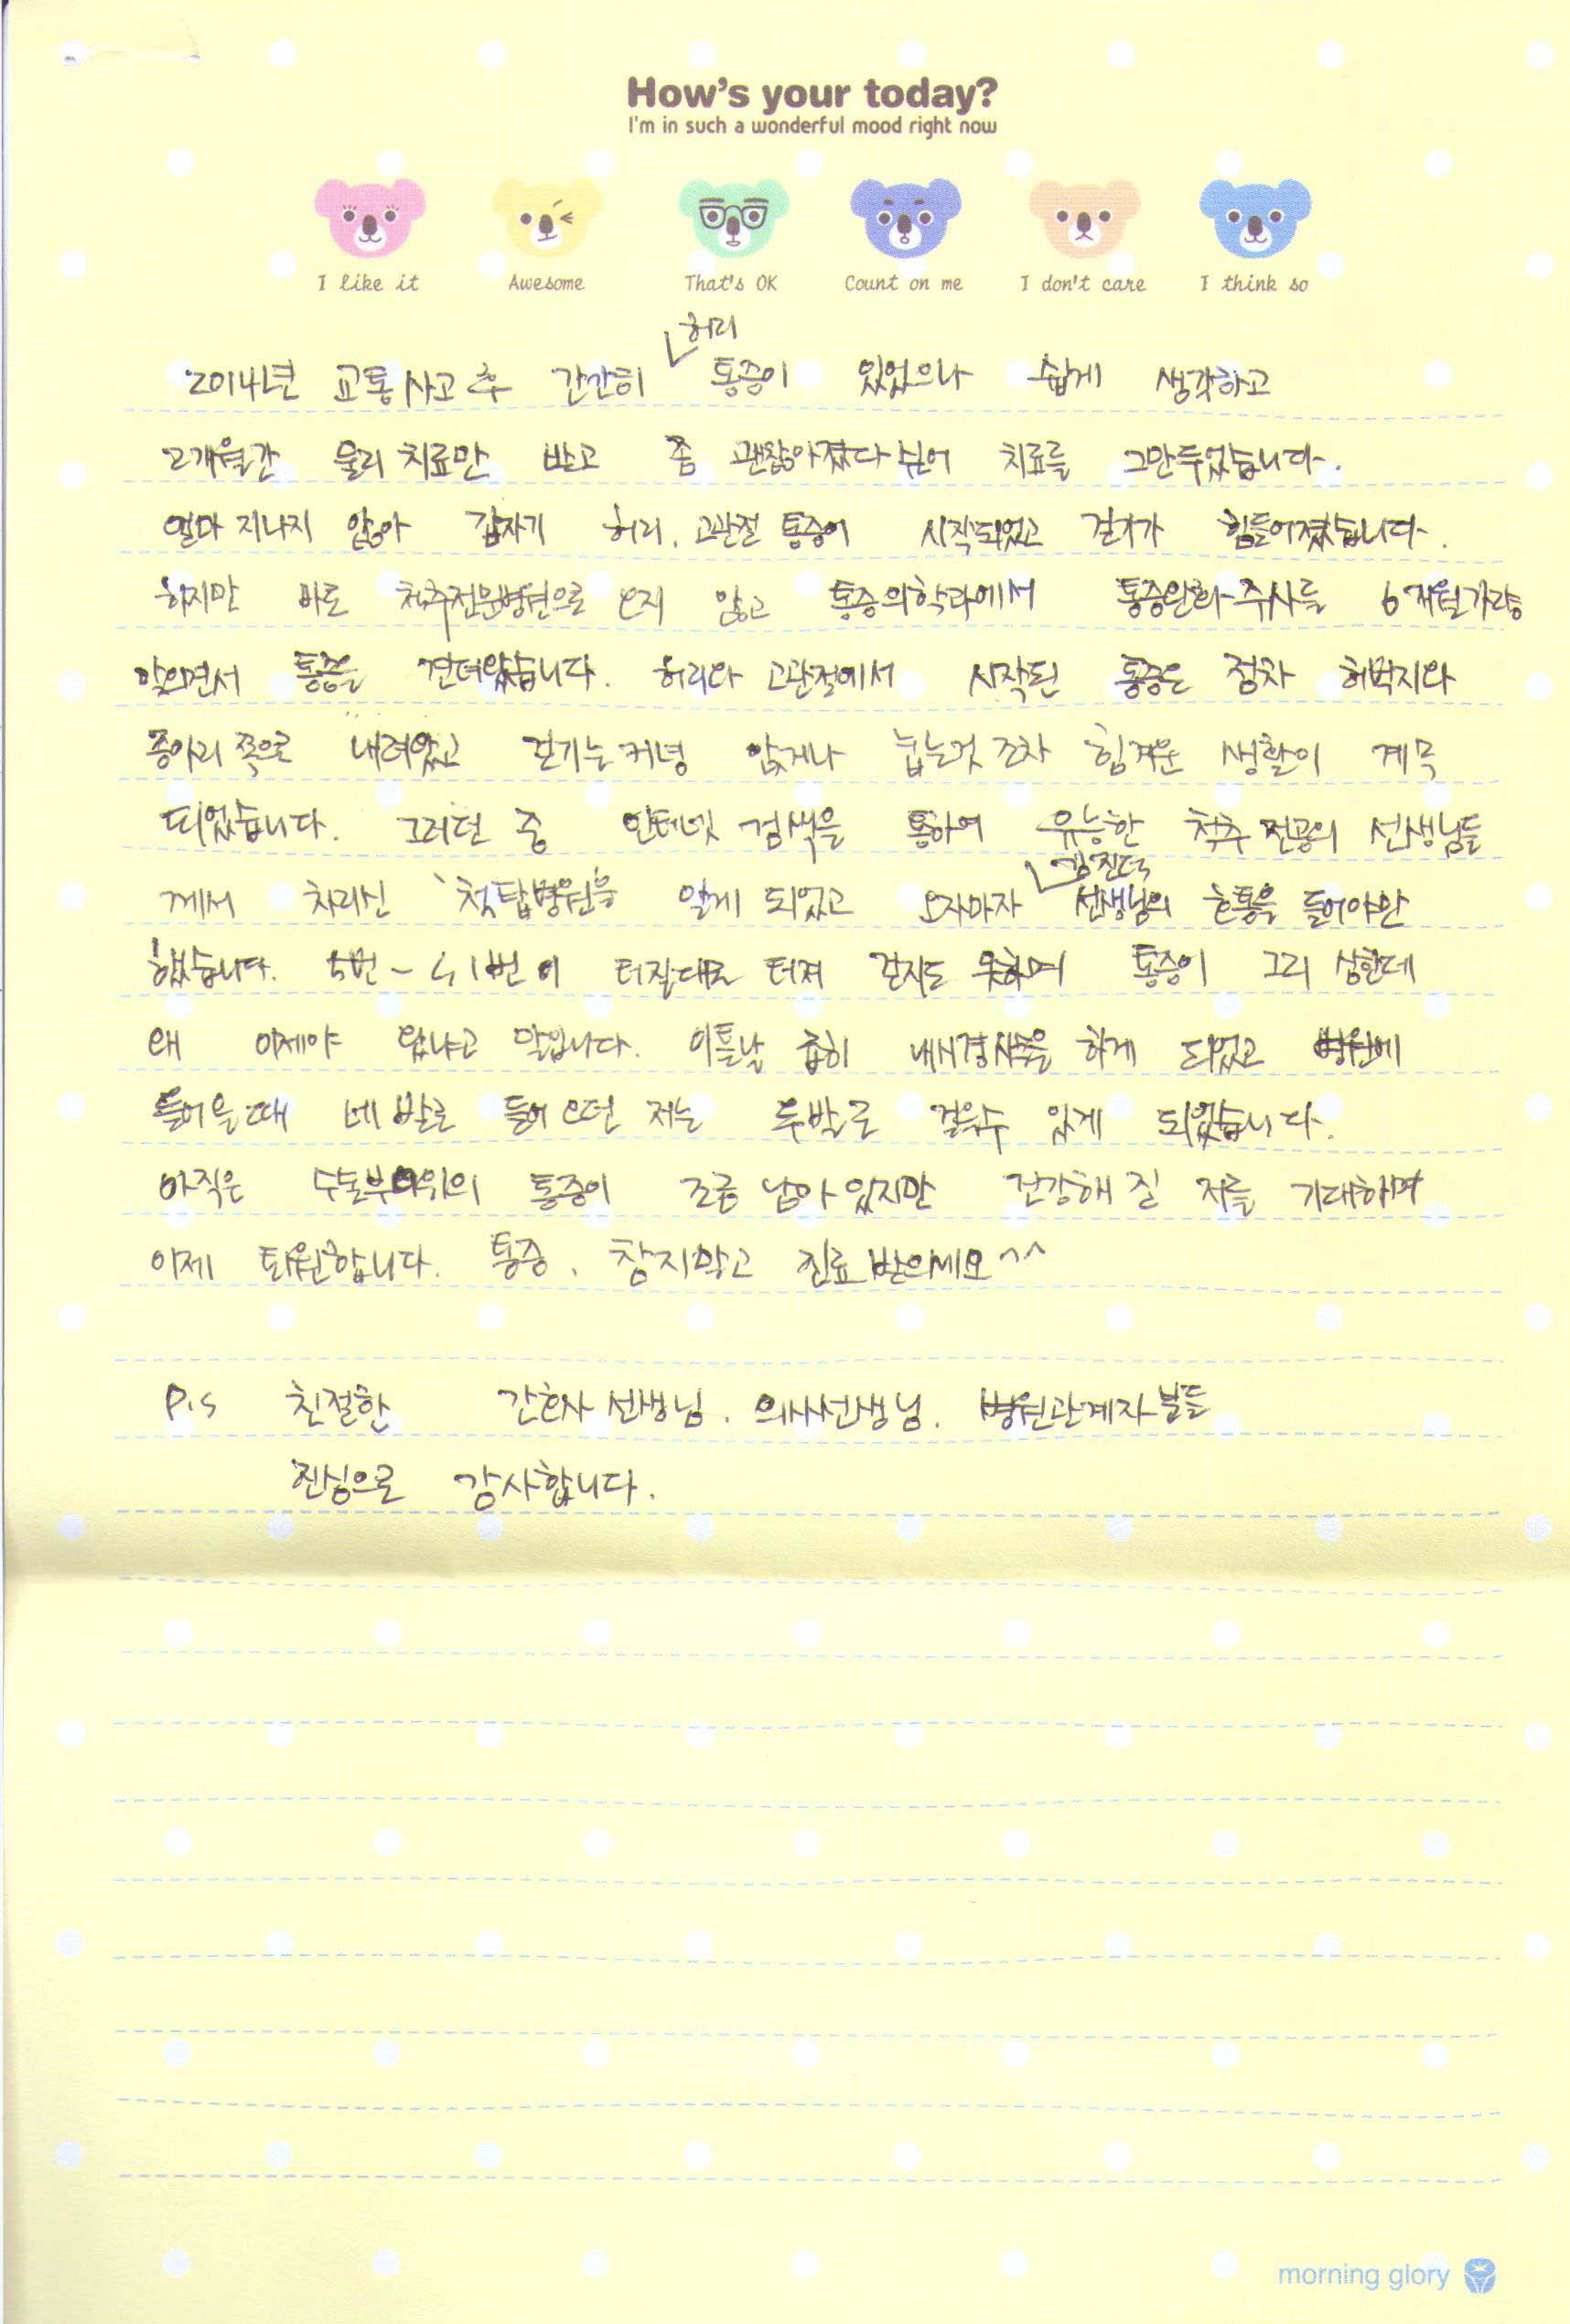 How's your today?
I'm in such a wonderful mood right now
I like it
Awesome
That's OK
Count on me
I don't care
I think so
허리
2014년 교통사고 후 간간히 통증이 있었으나 쉽게 생각하고
2개월간 물리치료만 받고 좀 괜찮아졌다 싶어 치료를 그만두었습니다.
얼마 지나지 않아 갑자기 허리. 고관절 통증이 시작되었고 걷기가 힘들어졌습니다.
하지만 바로 척추전문병원으로 오지 않고 통증의학과에서 통증완화주사를 6개월가량
맞으면서 통증을 견뎌왔습니다. 허리와 고관절에서 시작된 통증은 점차 허벅지와
종아리 쪽으로 내려왔고 걷기는커녕 앉거나 눕는것 조차 힘겨운 생활이 계속
되었습니다. 그러던 중 인터넷 검색을 통하여 유능한 척추 전공의 선생님들
께서 차리신 '척탑병원'을 알게 되었고 오자마자 선생님의 호통을 들어야만
했습니다. 5번 - 1번이 터질대로 터져 걷지도 못하며 통증이 그리 심한데
왜 이제야 왔냐고 말입니다. 이튿날 급히 내시경시술을 하게 되었고 병원에
들어올때 네발로 들어오던 저는 두발로 걸을수 있게 되었습니다.
아직은 수술부위의 통증이 조금 남아 있지만 건강해 질 저를 기대하며
이제 퇴원합니다. 통증, 참지말고 진료 받으세요^^
P.s 친절한 간호사 선생님. 의사선생님. 병원관계자분들
진심으로 감사합니다.
morning glory